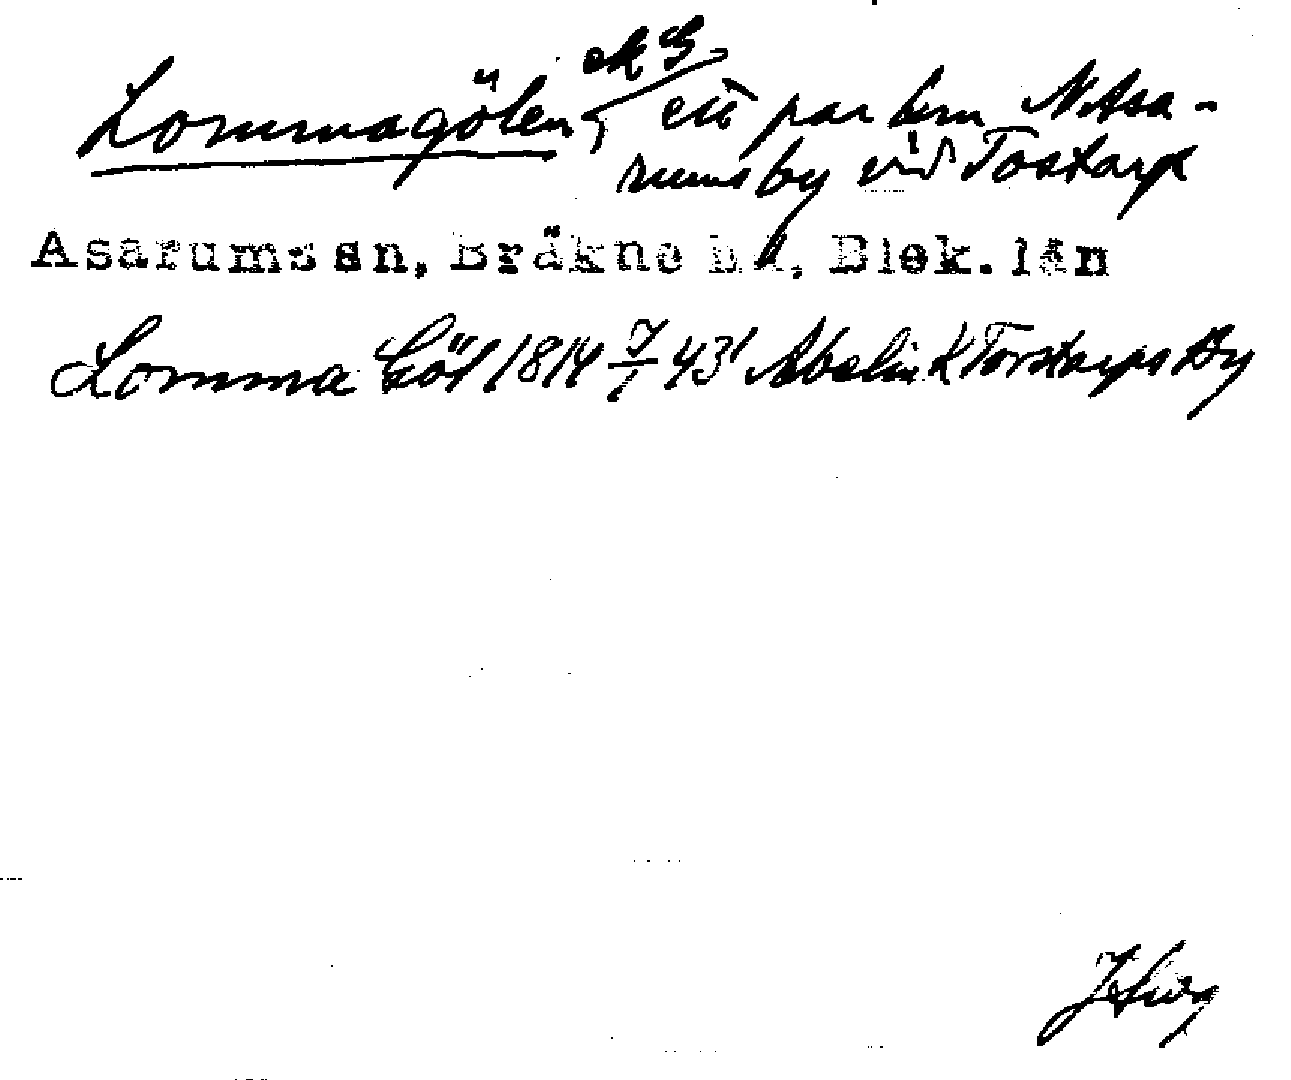 Lommagölen ek S ett par km N Asa-
rums by vid Tostarp
Asarums sn, Bräkne hd, Blek. län
Lomma Göl 1814 7/1 43' Abelin K Torstarps By